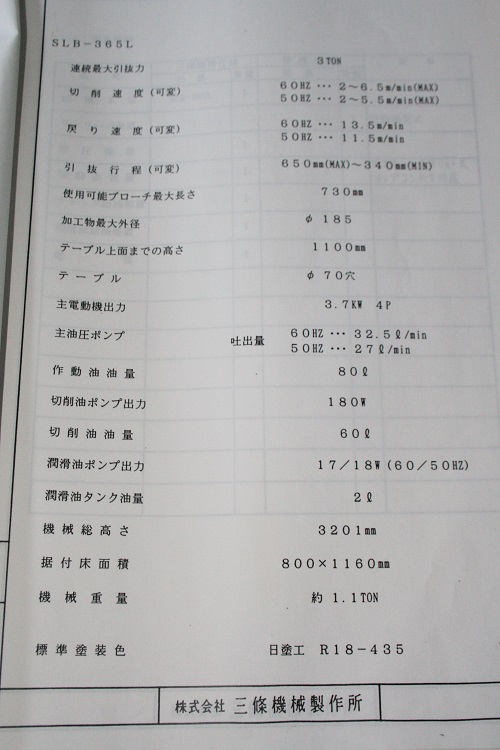 SLB-365L
連続最大引抜力 3TON
切削速度(可変) 60HZ … 2~6.5m/min(MAX)
50HZ … 2~5.5m/min(MAX)
戻り速度(可変) 60HZ … 13.5m/min
50HZ … 11.5m/min
引抜行程(可変) 650mm(MAX)~340mm(MIN)
使用可能ブローチ最大長さ 730mm
加工物最大外径 φ185
テーブル上面までの高さ 1100mm
テーブル φ70穴
主電動機出力 3.7KW 4P
主油圧ポンプ 吐出量 60HZ … 32.5ℓ/min
50HZ … 27ℓ/min
作動油油量 80ℓ
切削油ポンプ出力 180W
切削油油量 60ℓ
潤滑油ポンプ出力 17/18W(60/50HZ)
潤滑油タンク油量 2ℓ
機械総高さ 3201mm
据付床面積 800×1160mm
機械重量 約1.1TON
標準塗装色 日塗工 R18-435
株式会社 三條機械製作所